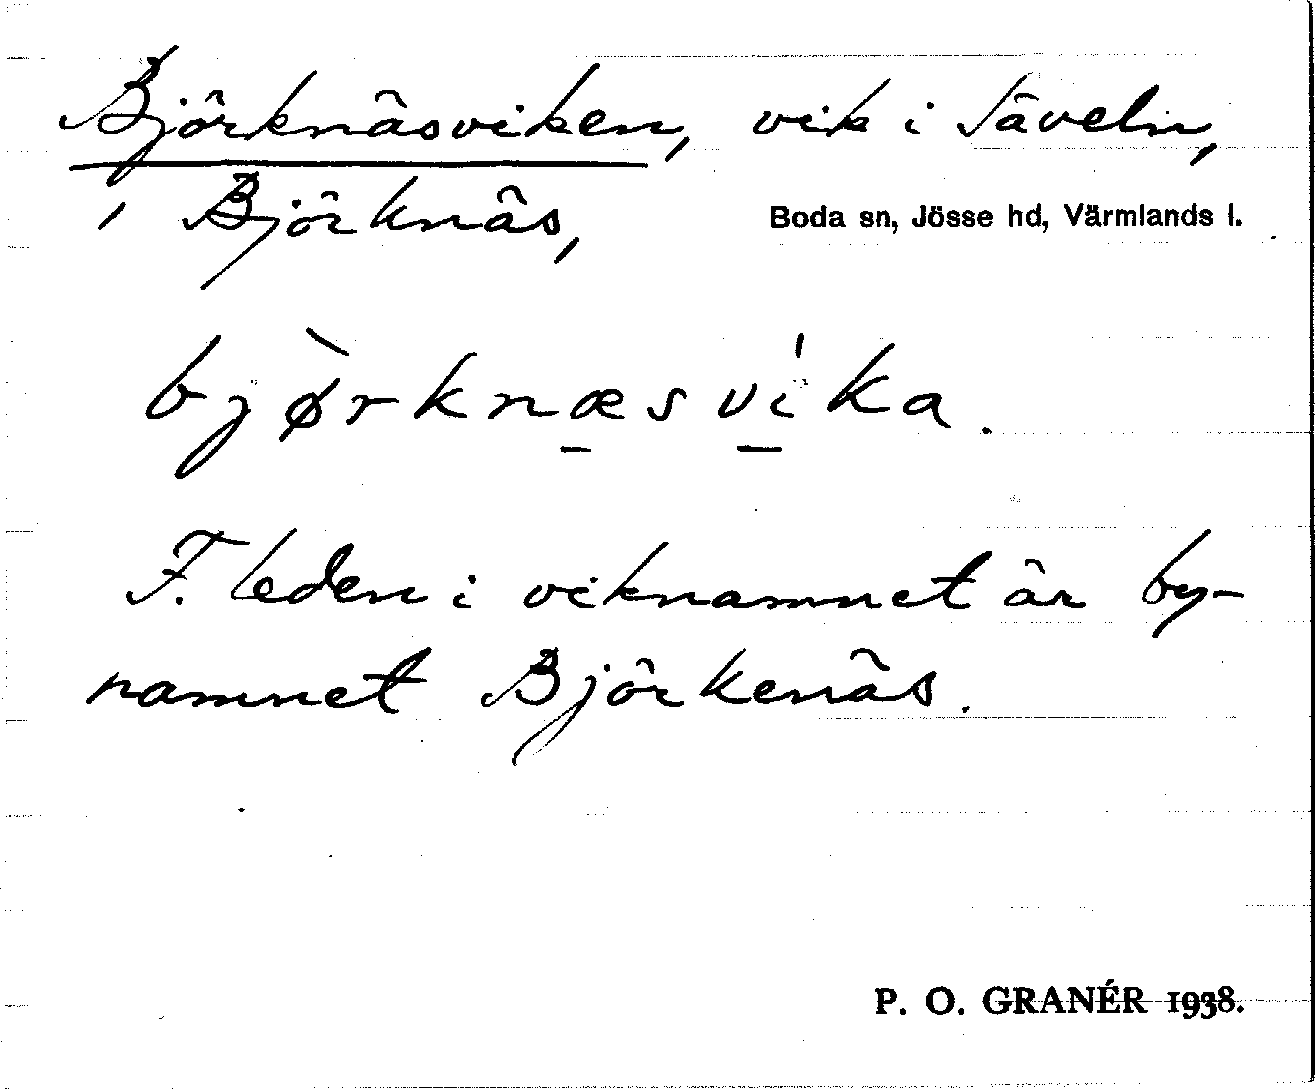 Björknäsviken, vik i Säveln,
i Björknäs, Boda sn, Jösse hd, Värmlands l.
bjø̀rknæ̲sv̲íka.
F. leden i viknamnet är by-
namnet Björkenäs.
P. O. GRANÉR 1938.